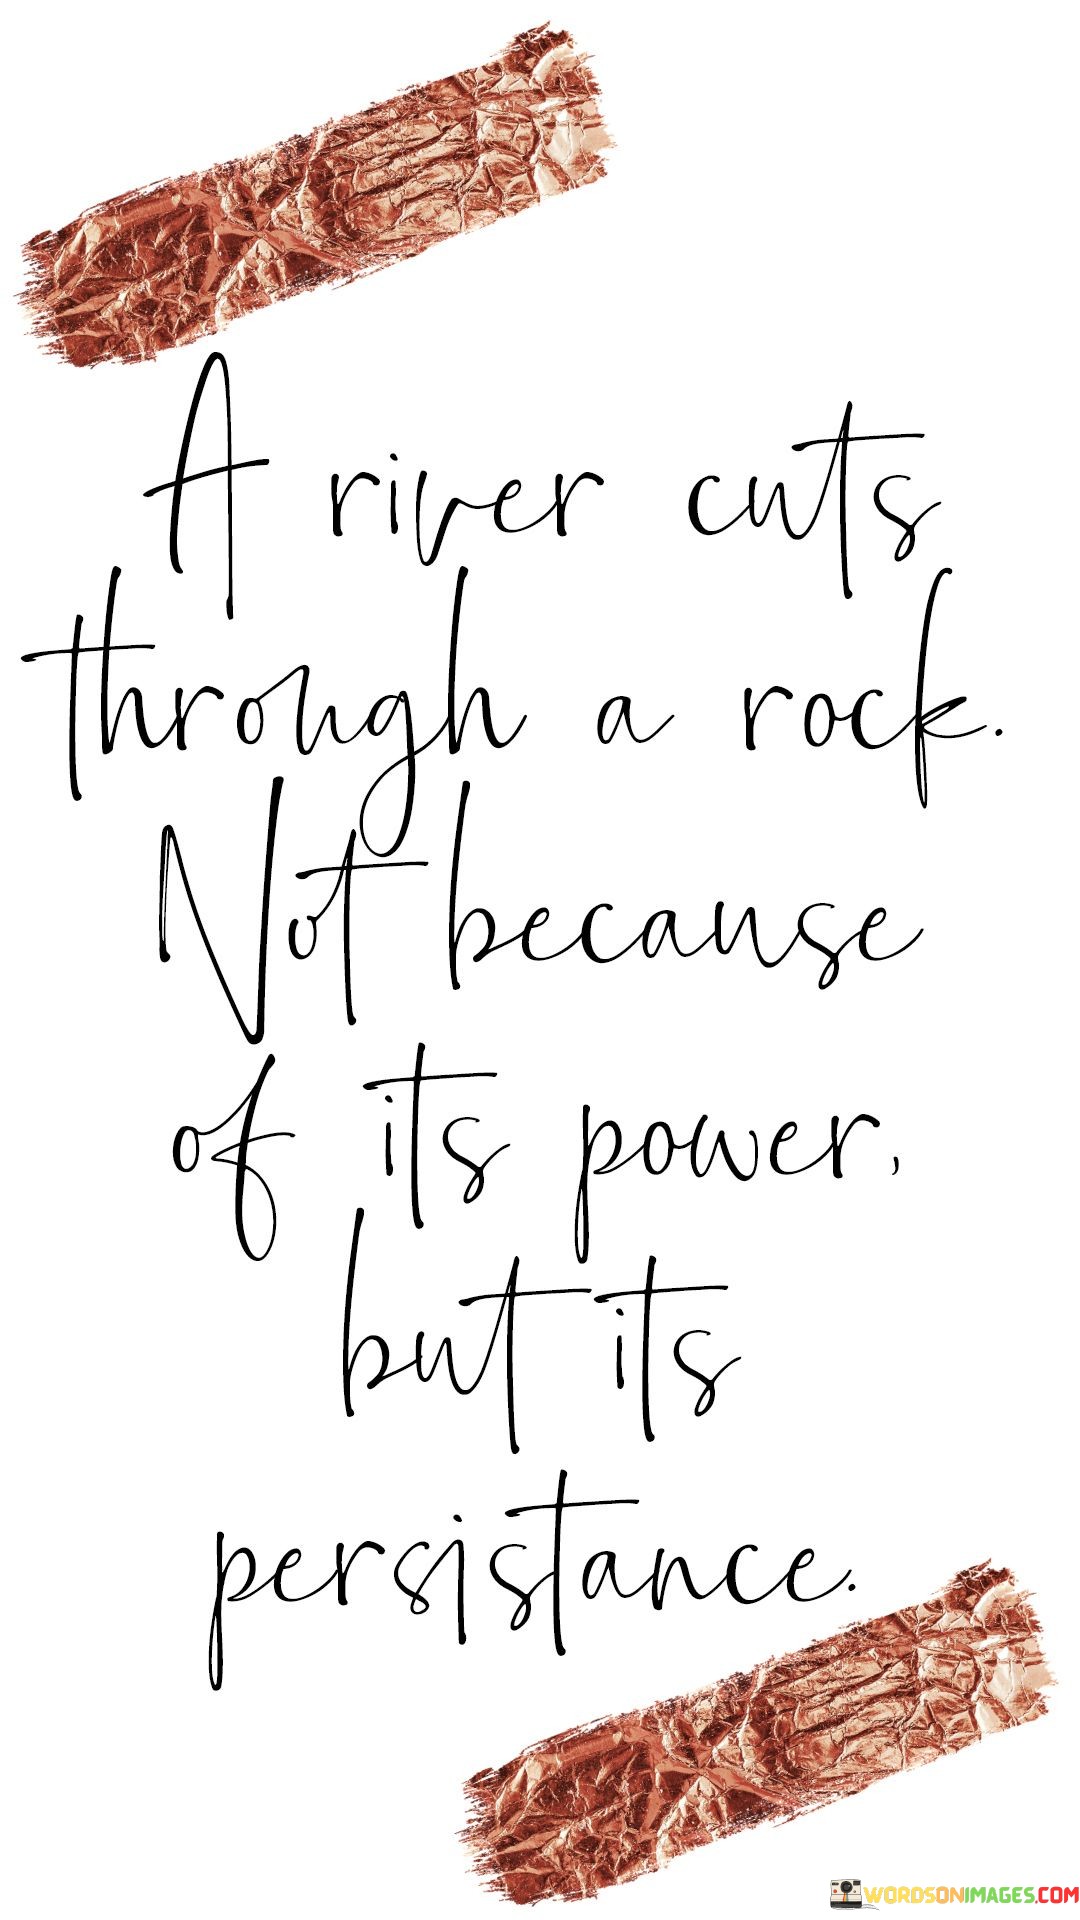 A river cuts
through a rock.
Not because
of its power,
but its
persistance.
WORDSONIMAGES.COM